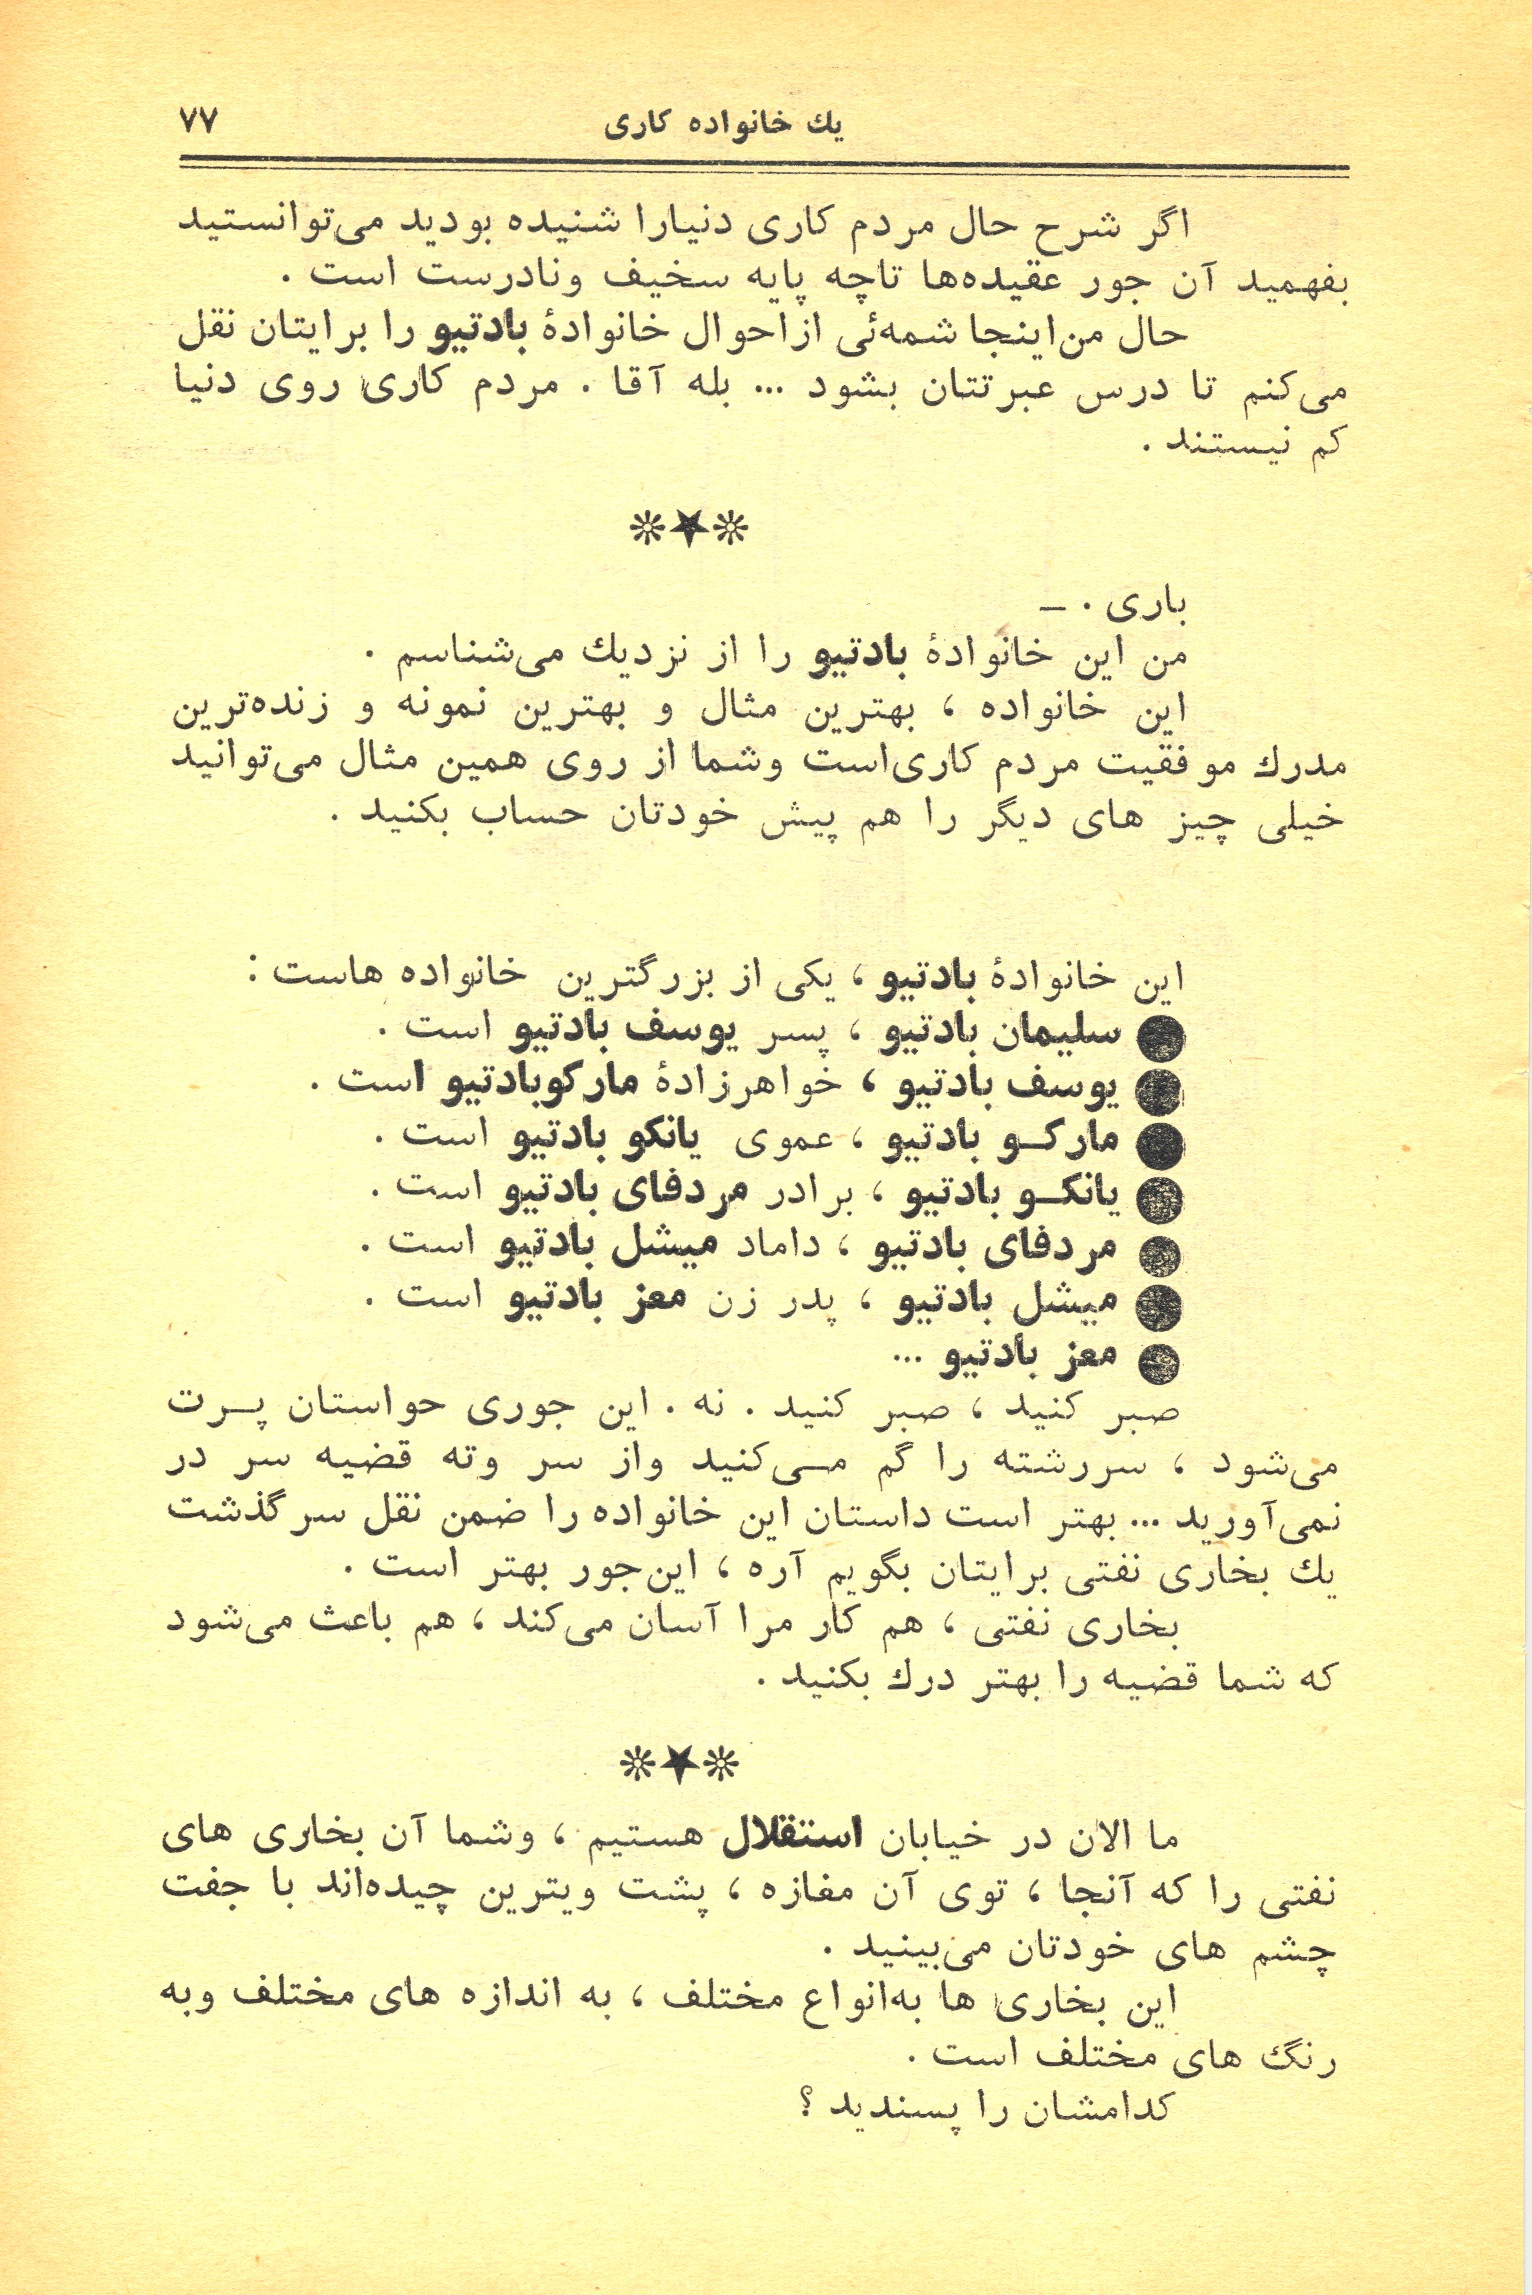 یك خانواده کاری
۷۷
اگر شرح حال مردم کاری دنیارا شنیده بودید می‌توانستید
بفهمید آن جور عقیده‌ها تاچه پایه سخیف ونادرست است .
حال من‌اینجا شمه‌ئی ازاحوال خانوادهٔ بادتیو را برایتان نقل
می‌کنم تا درس عبرتتان بشود ... بله آقا . مردم کاری روی دنیا
کم نیستند .
باری . ــ
من این خانوادهٔ بادتیو را از نزدیك می‌شناسم .
این خانواده ، بهترین مثال و بهترین نمونه و زنده‌ترین
مدرك موفقیت مردم کاری‌است وشما از روی همین مثال می‌توانید
خیلی چیز های دیگر را هم پیش خودتان حساب بکنید .
این خانوادهٔ بادتیو ، یکی از بزرگترین خانواده هاست :
● سلیمان بادتیو ، پسر یوسف بادتیو است .
● یوسف بادتیو ، خواهرزادهٔ مارکوبادتیو است .
● مارکـو بادتیو ، عموی یانکو بادتیو است .
● یانکـو بادتیو ، برادر مردفای بادتیو است .
● مردفای بادتیو ، داماد میشل بادتیو است .
● میشل بادتیو ، پدر زن معز بادتیو است .
● معز بادتیو ...
صبر کنید ، صبر کنید . نه . این جوری حواستان پـرت
می‌شود ، سررشته را گم مـی‌کنید واز سر وته قضیه سر در
نمی‌آورید ... بهتر است داستان این خانواده را ضمن نقل سرگذشت
یك بخاری نفتی برایتان بگویم آره ، این‌جور بهتر است .
بخاری نفتی ، هم کار مرا آسان می‌کند ، هم باعث می‌شود
که شما قضیه را بهتر درك بکنید .
ما الان در خیابان استقلال هستیم ، وشما آن بخاری های
نفتی را که آنجا ، توی آن مغازه ، پشت ویترین چیده‌اند با جفت
چشم های خودتان می‌بینید .
این بخاری ها به‌انواع مختلف ، به اندازه های مختلف وبه
رنگ های مختلف است .
کدامشان را پسندید ؟